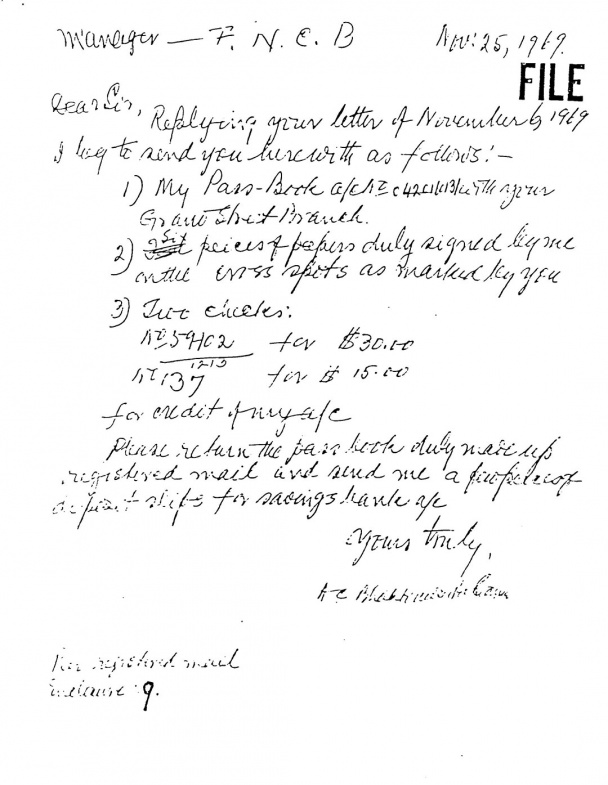 Manager — F. N. C. B Nov: 25, 1969.
FILE
Dear Sir,
Replying your letter of November 6, 1969
I beg to send you herewith as follows:-
1) My Pass-Book a/c No with your
Grand Street Branch.
2) Six peices of papers duly signed by me
on the cross spots as marked by you
3) Two checks.
No 59102 for $30.00
1210
No 137 for $ 15.00
for credit of my a/c
Please return the pass book duly made up
registered mail and send me a few pieces of
deposit slips for savings bank a/c
Yours truly,
A C Bhaktivedanta Swami
Per registered mail
Enclosure: 9.